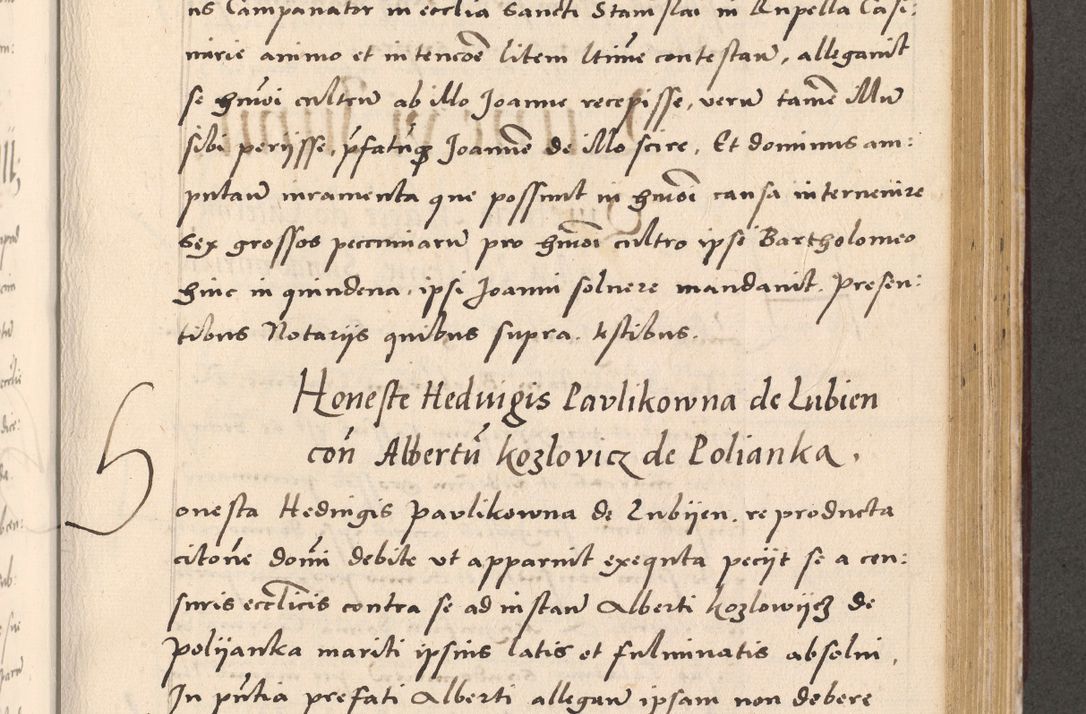 us Campanator in ecclia Sancti Stanislai in Rupella Casi:
mirie animo et intencoē litem ltime contestan̄, allegavit
se hmōi cultrū ab illo Joanne recepisse, verū tamē illū
sibi perijsse, p̄fatūq Joannē de illo scire, Et dominus am:
putan̄ iuramenta que possunt in hmōi causa intervenire
sex grossos pecuniarū pro hmōi cultro ipsi Bartholomeo
hinc in quindena, ipsi Joanni solvere mandavit. Presen:
tibus Notarijs quibus supra. testibus.
Honeste Hedvigis Pavlikowna de Lubien
cōn Albertū Kozlovicz de Polianka.
Honesta Hedvigis Pavlikowna de Lubijen. reproducta
citōne domī debite ut apparuit exequta pecijt se a cen:
suris ecclīcis contra se ad instan̄ Alberti Kozlowijcz de
Polijanka mariti ipsius latis et fulminatis absolvi,
In pn̄tia prefati Alberti allegan̄ ipsam non debere